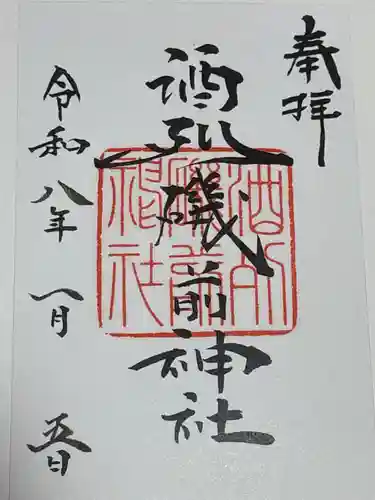 奉拝
酒列磯前神社
令和八年一月五日
酒列
磯前
神社